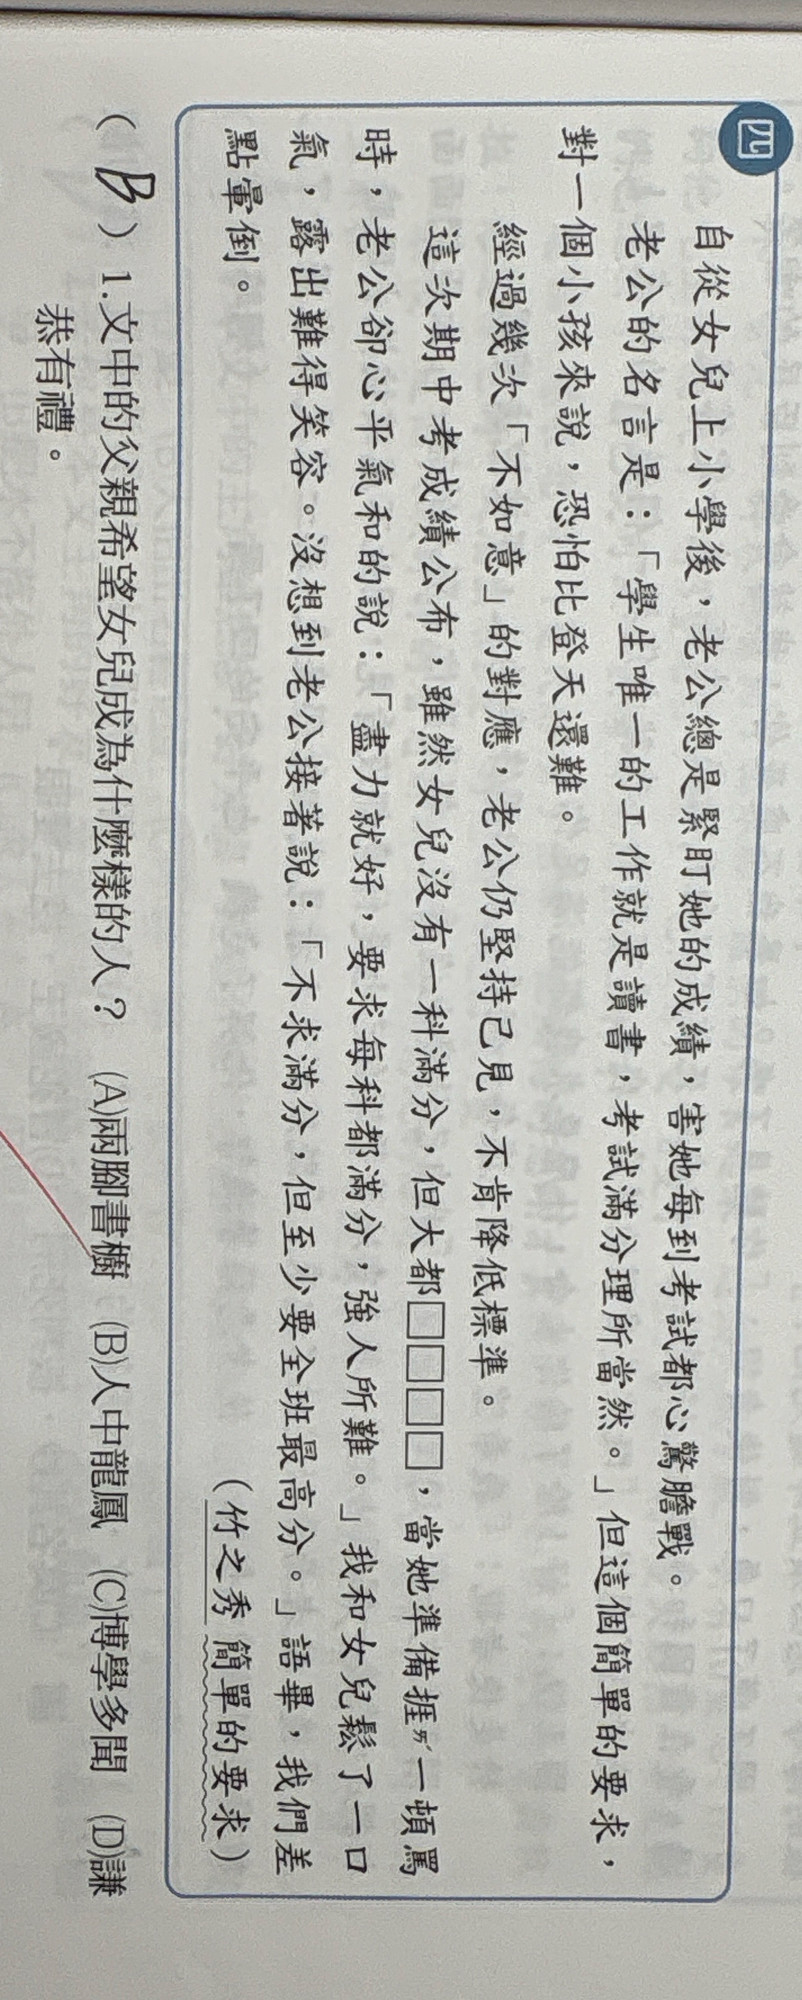 四
自從女兒上小學後，老公總是緊盯她的成績，害她每到考試都心驚膽戰。
老公的名言是：「學生唯一的工作就是讀書，考試滿分理所當然。」但這個簡單的要求，
對一個小孩來說，恐怕比登天還難。
經過幾次「不如意」的對應，老公仍堅持己見，不肯降低標準。
這次期中考成績公布，雖然女兒沒有一科滿分，但大都□□□□，當她準備捱ㄞˊ一頓罵
時，老公卻心平氣和的說：「盡力就好，要求每科都滿分，強人所難。」我和女兒鬆了一口
氣，露出難得笑容。沒想到老公接著說：「不求滿分，但至少要全班最高分。」語畢，我們差
點暈倒。
（竹之秀 簡單的要求）
（ B ）1.文中的父親希望女兒成為什麼樣的人？ (A)兩腳書櫥 (B)人中龍鳳 (C)博學多聞 (D)謙
恭有禮。